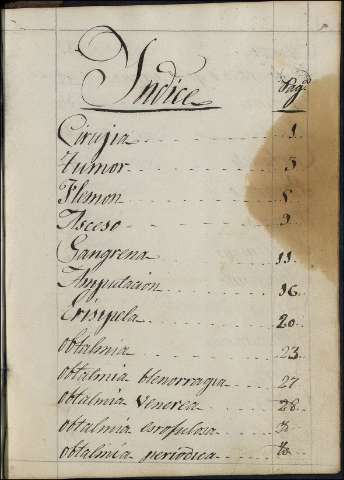 Indice Pag.s
Cirujia 1
Tumor 3
Flemon 8
Asceso 9
Gangrena 11
Amputacion 16
Erisipela 20
obtalmia 23
obtalmia blenorragia 27
obtalmia venerea 28
obtalmia esrofulosa
obtalmia periodica